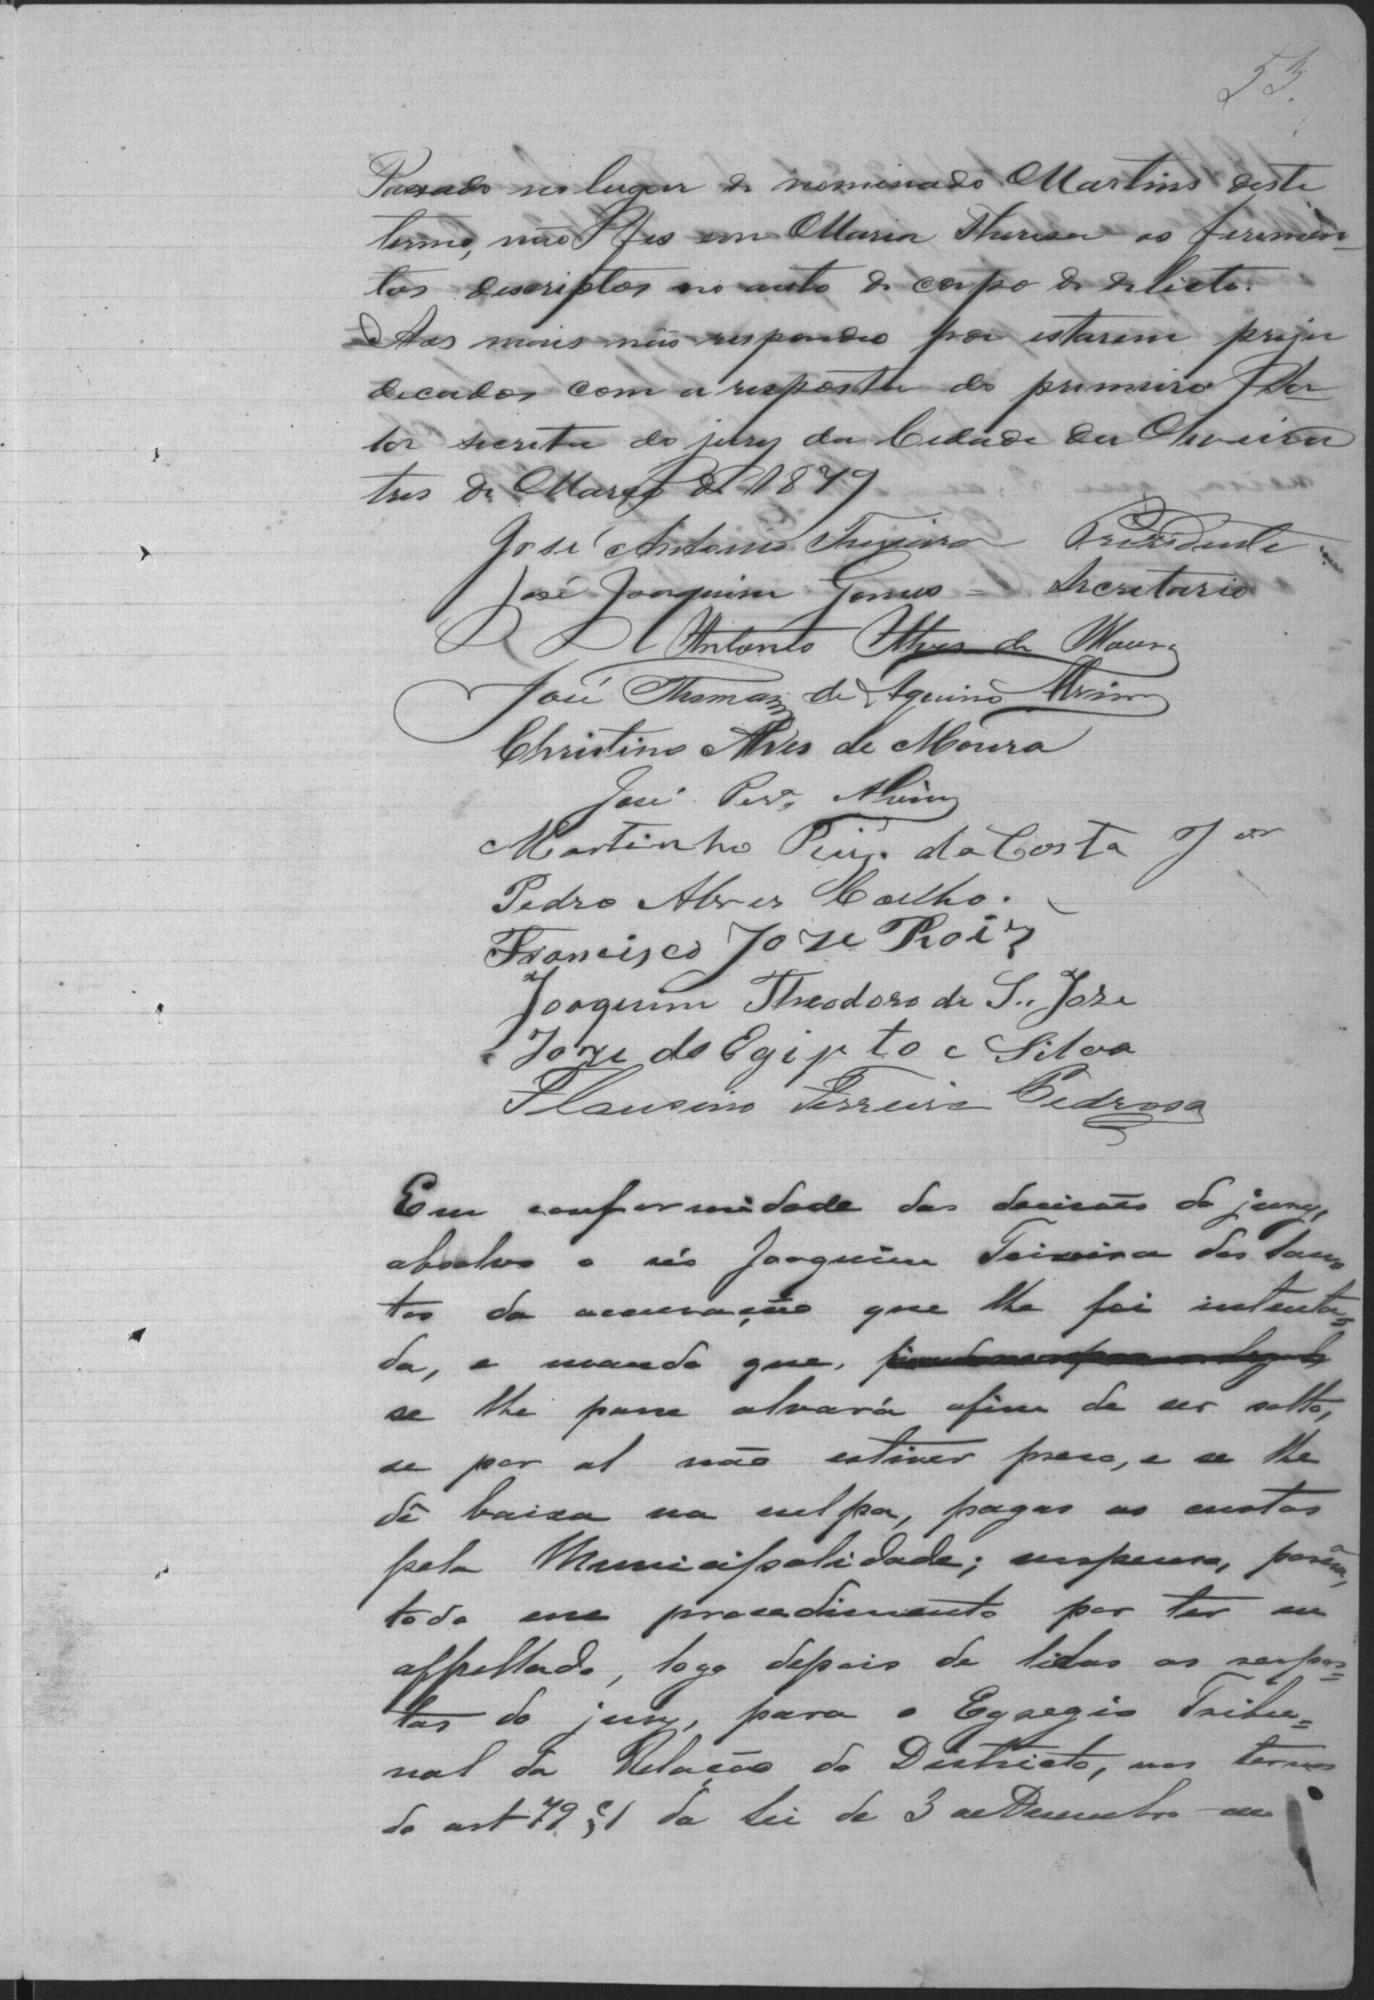 53.
Passado no lugar de nominado Martins deste
termo, não fes em Maria Theresa os ferimen-
tos descriptos no auto de corpo de delicto.
Aos mais não respondeo por estarem preju
decados com a resposta do primeiro
secreta do jury da Cedade da Oliveira
tres de Março de 1879
José Antonio Teixeira Prezidente
José Joaquim Gomes = Secretario
Antonio Alves de Moura
José Thomaz de Aquino Alvim
Christino Alves de Moura
José Perª Alvim
Martinho da Costa Jor
Pedro Alves Coelho.
Francisco Joze Roiz
Joaquim Theodoro de S. Joze
Joze do Egipto e Silva
Flausino Ferreira Pedrosa
Em conformidade das decisões do jury,
absolvo o réo Joaquim Teixeira dos San
tos da accusação que lhe foi intenta=
da, e mando que,
se lhe passe alvará afim de ser solto,
se por al não estiver preso, e se lhe
dê baixa na culpa, pagas as custas
pela Municipalidade; suspenso, porém,
todo esse procedimento por ter eu
appellado, logo depois de lidas as respos=
tas do jury, para o Egregio Tribu=
nal da Relação do Districto, nos termos
do art 79 § 1 da Lei de 3 de Dezembro de